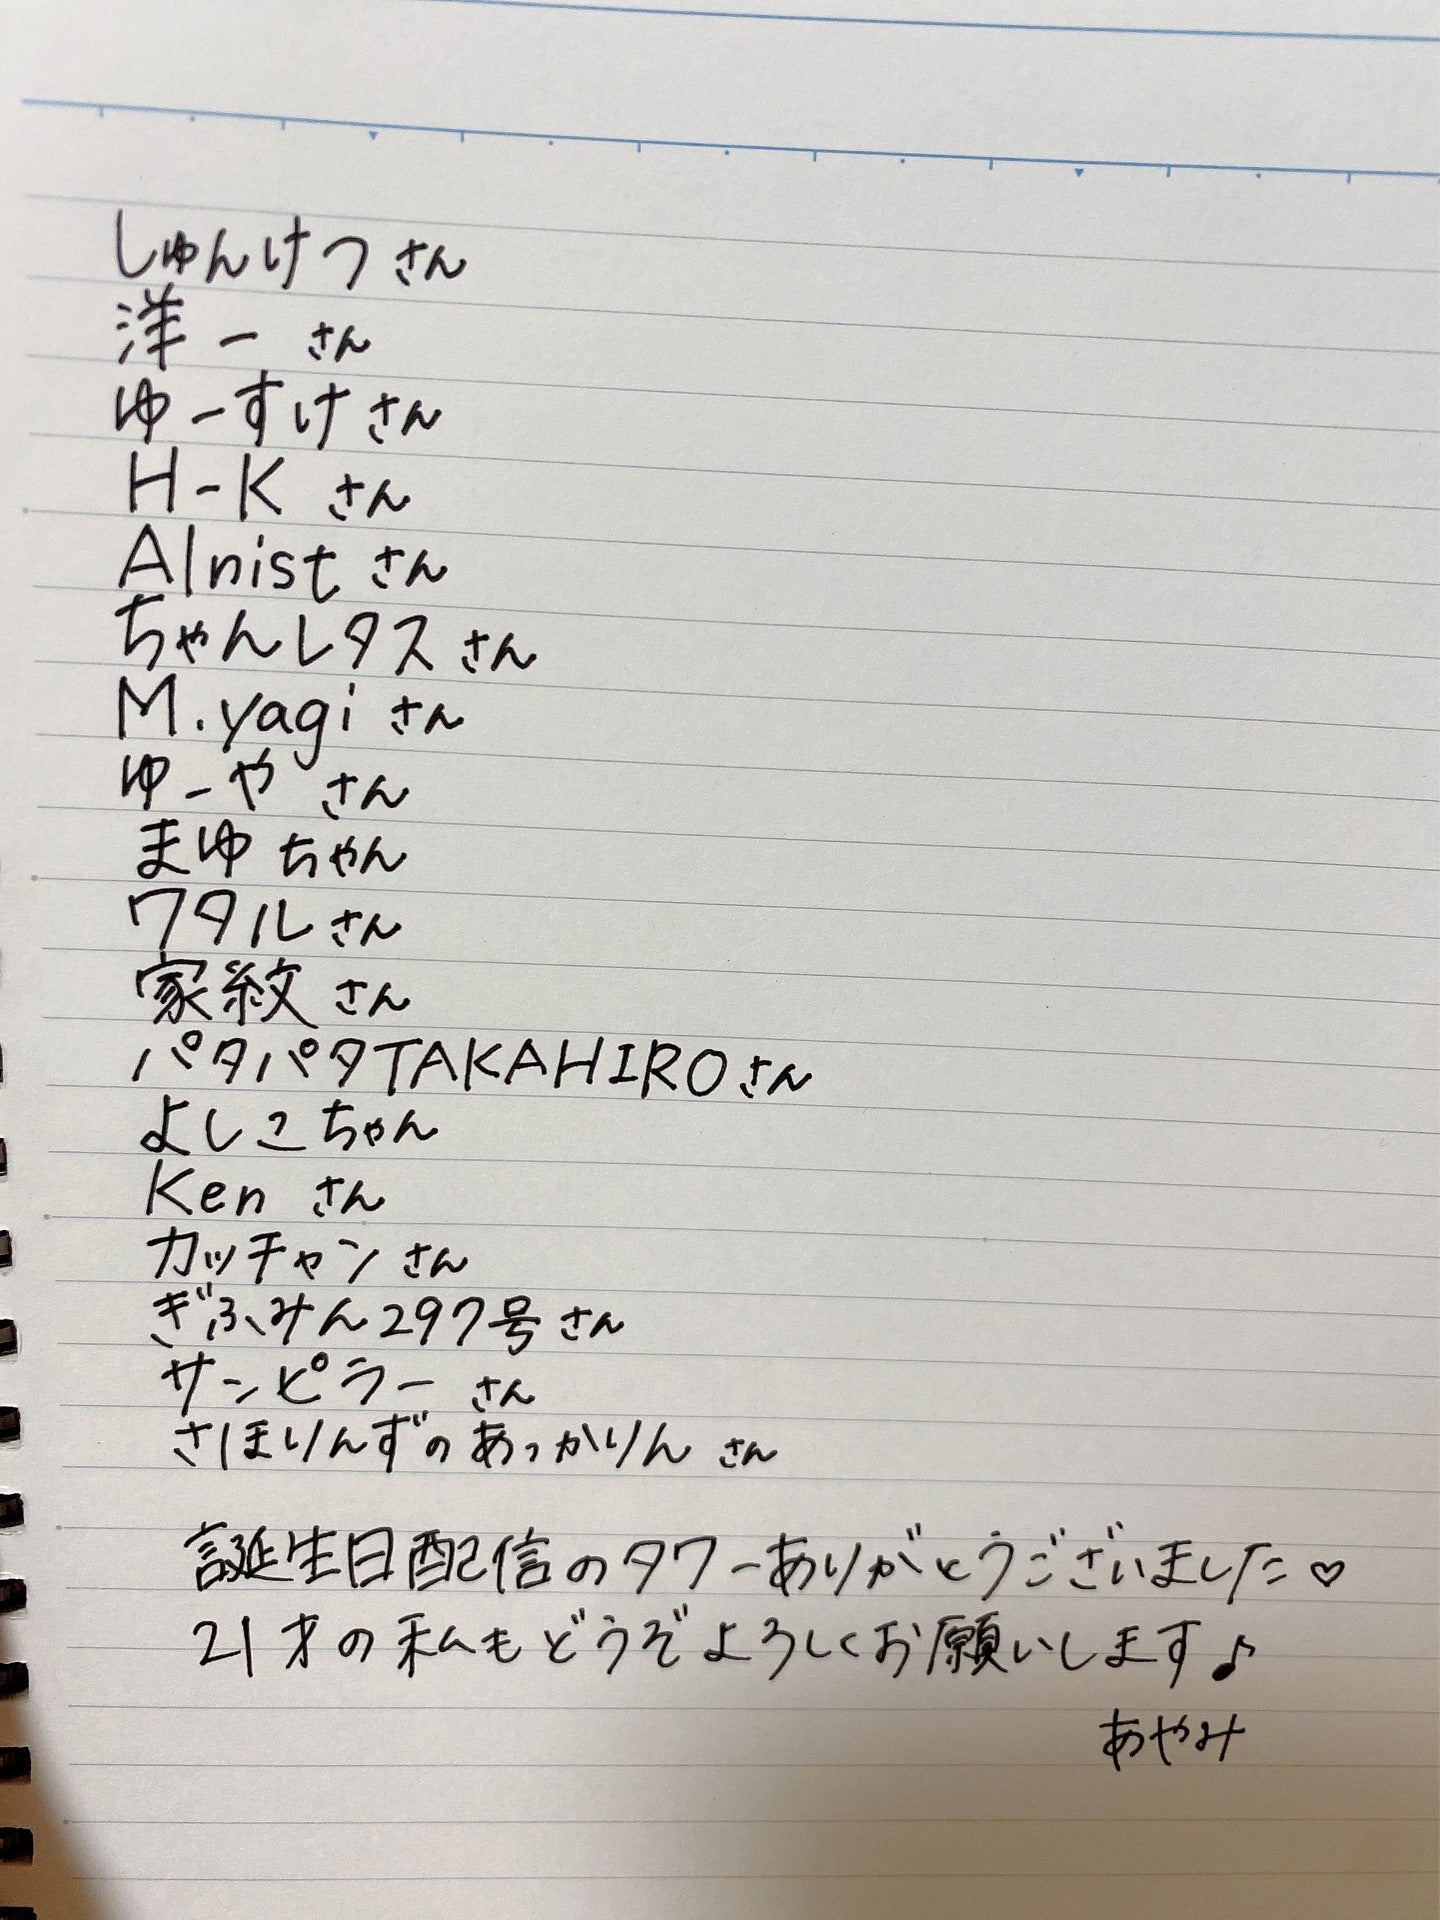 しゅんけつさん
洋一さん
ゆーすけさん
H-Kさん
Alnistさん
ちゃんレタスさん
M.yagiさん
ゆーやさん
まゆちゃん
ワタルさん
家紋さん
パタパタTAKAHIROさん
よしこちゃん
Kenさん
カッチャンさん
ぎふみん297号さん
サンピラーさん
さほりんずのあっかりんさん
誕生日配信のタワーありがとうございました♡
21才の私もどうぞよろしくお願いします♪
あやみ